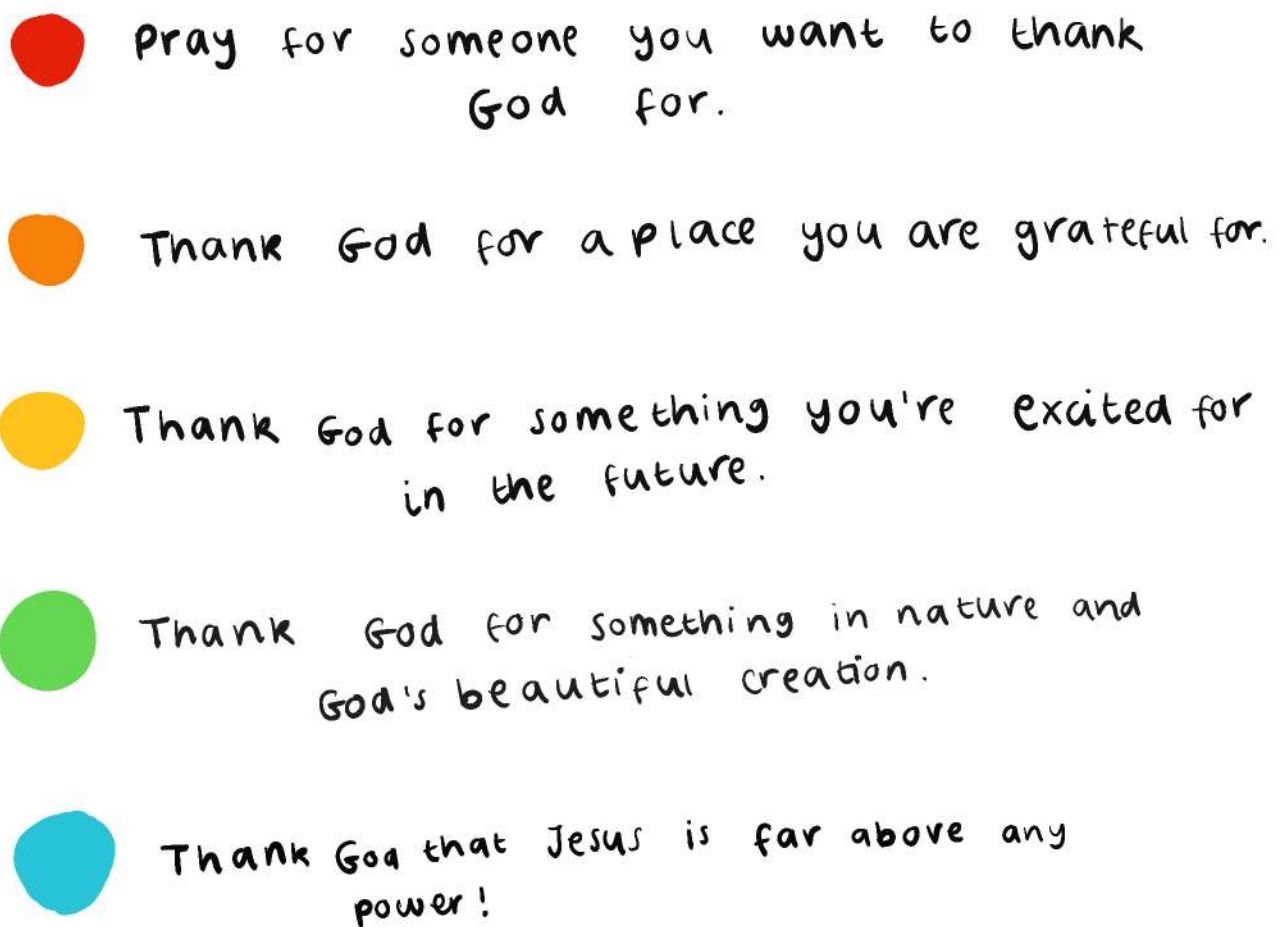 Pray for someone you want to thank
God for.
Thank God for a place you are grateful for.
Thank God for something you're excited for
in the future.
Thank God for something in nature and
God's beautiful creation.
Thank God that Jesus is far above any
power!